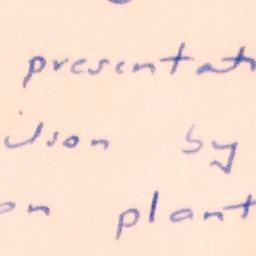 presentat
ilson by
on plant